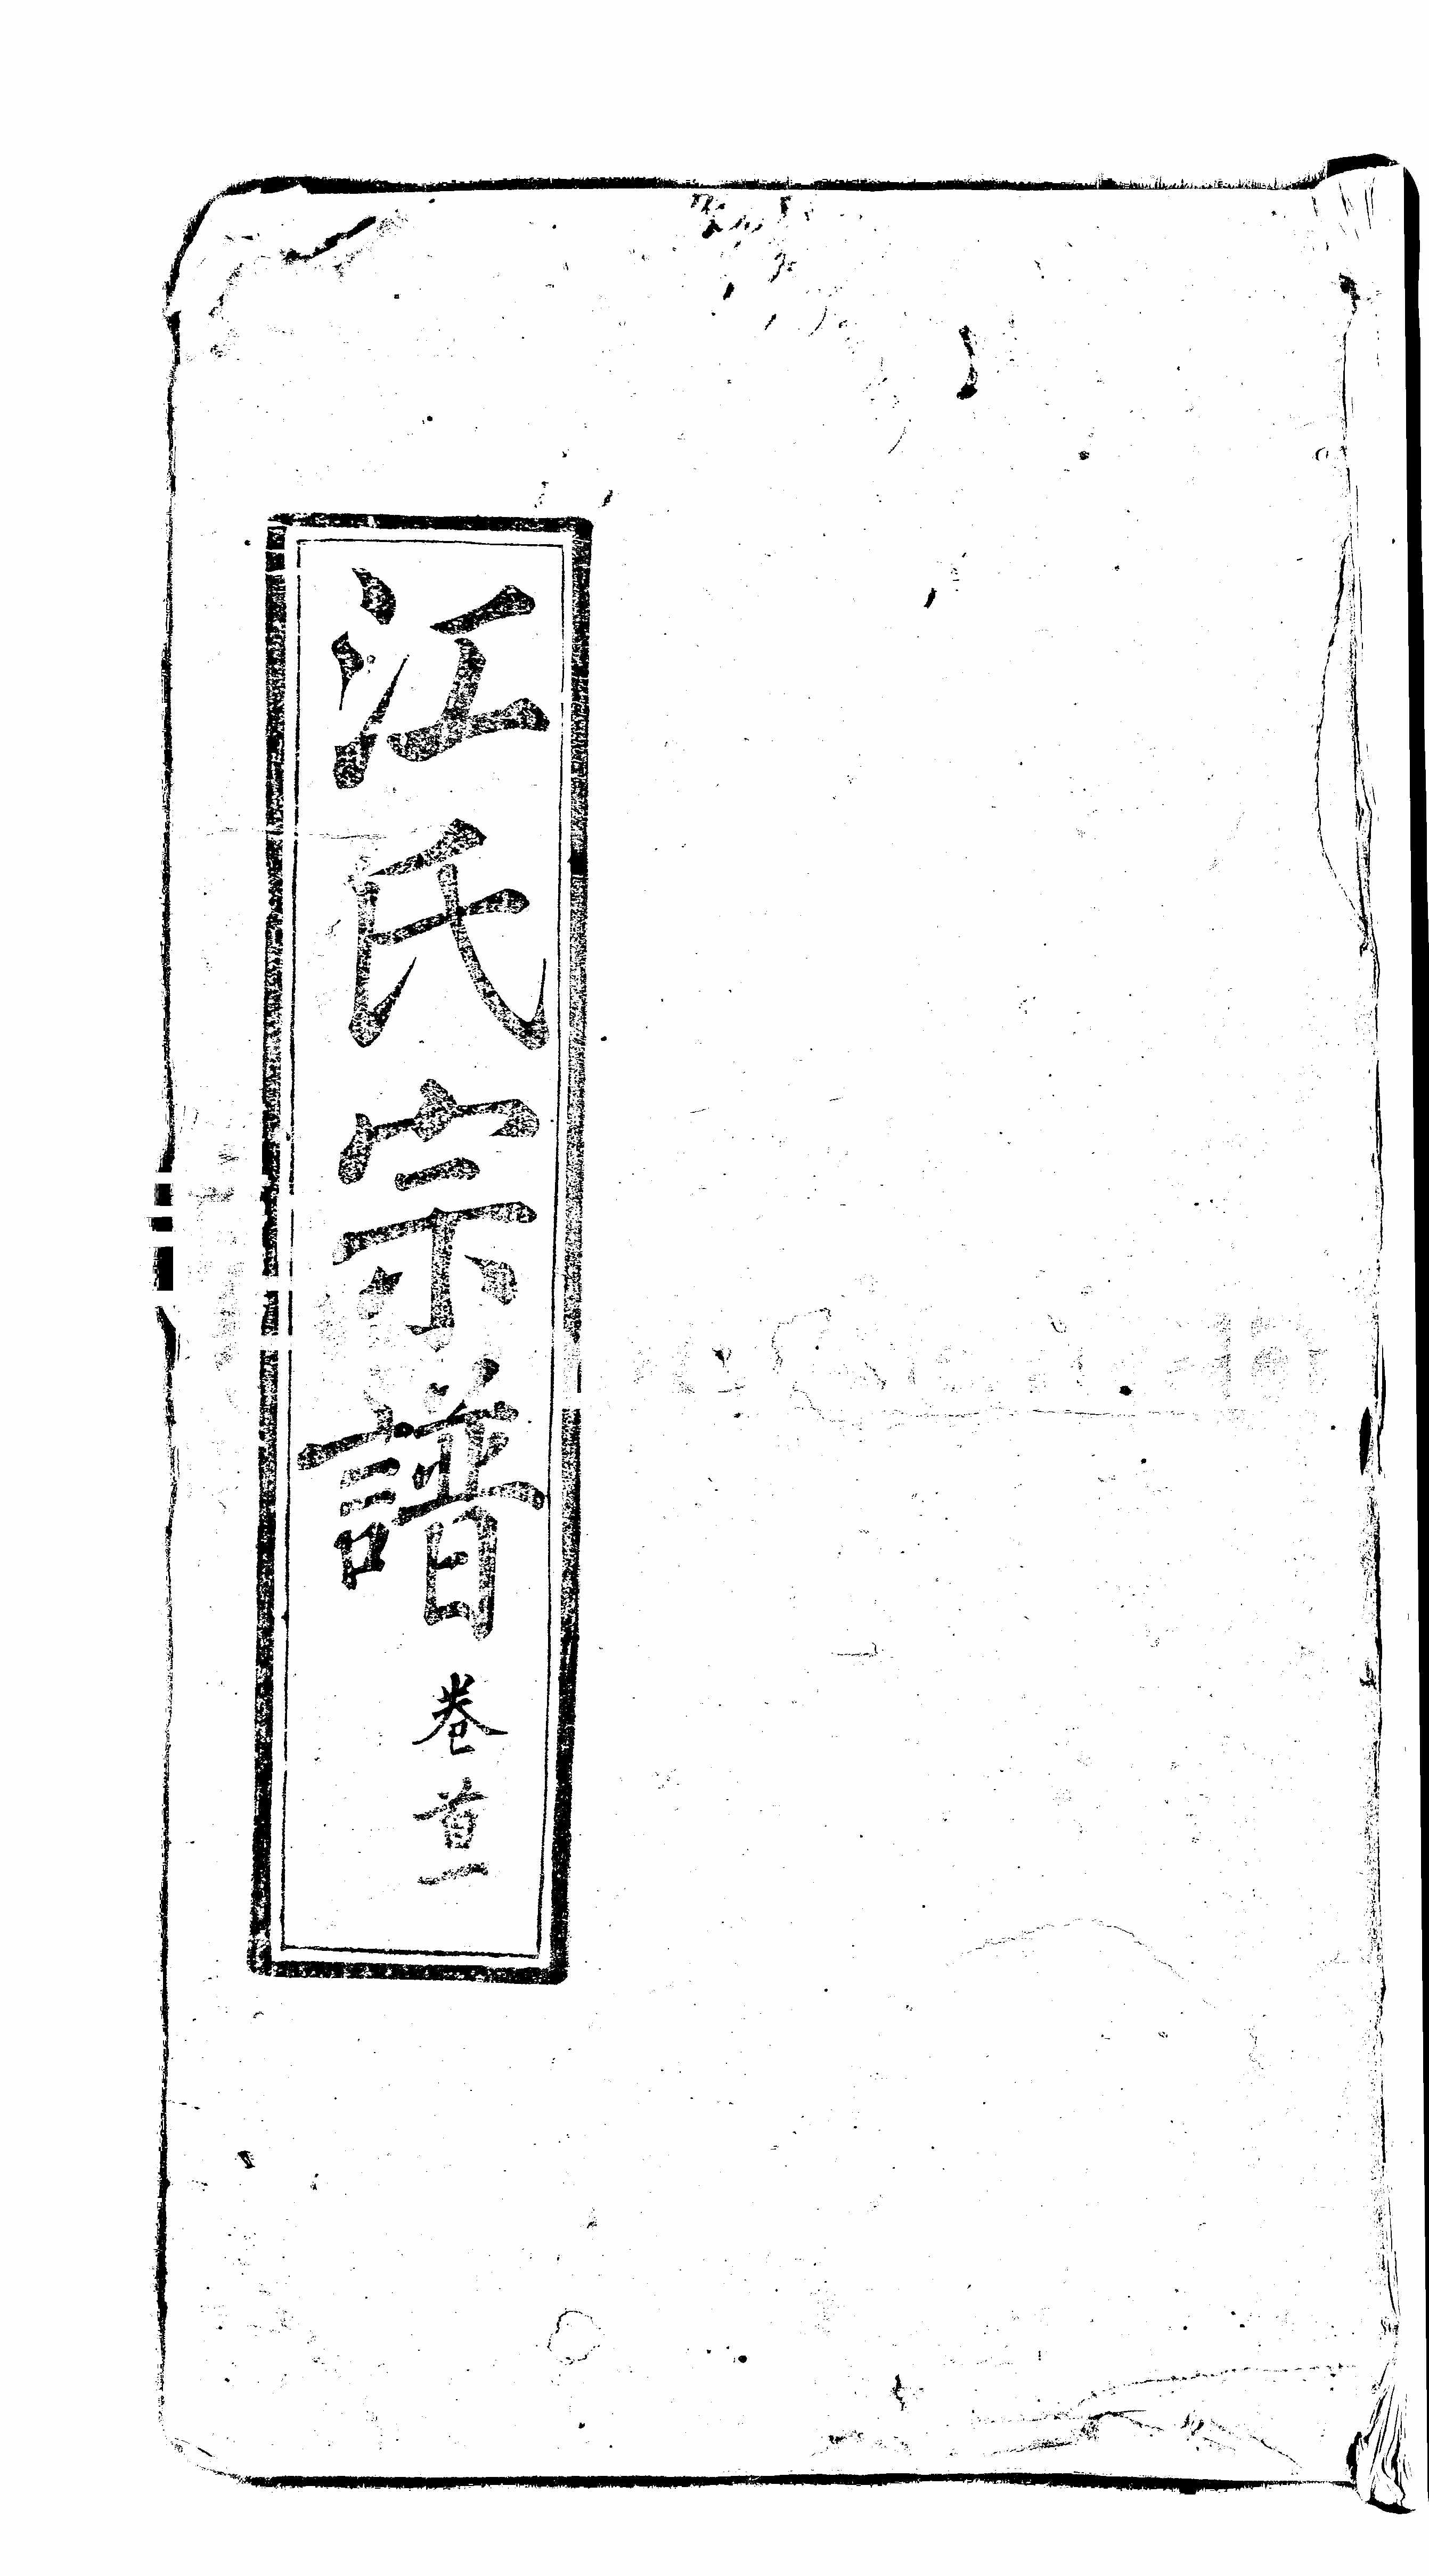 江氏宗譜
卷首一